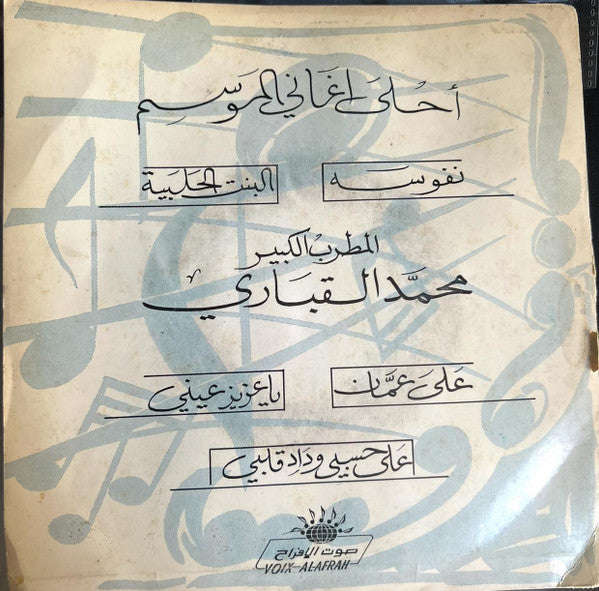 أحلى اغاني الموسم
نفوسه
البنت الحلبية
المطرب الكبير
محمَّد القباري
على عمَّان
يا عزيز عيني
على حسبي وداد قلبي
صوت الافراح
VOIX-ALAFRAH